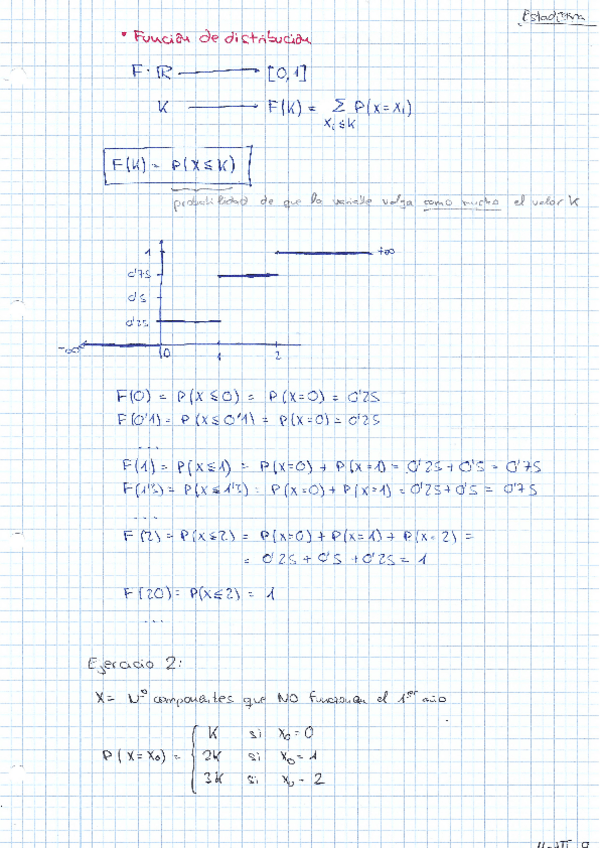 Estadística
• Función de distribución
F: ℝ ⟶ [0,1]
K ⟶ F(K) = Σ P(X=xi)
xi≤K
F(K) = P(X≤K)
probabilidad de que la variable valga como mucho el valor K
1
+∞
0'75
0'5
0'25
-∞ 0 1 2
F(0) = P(X≤0) = P(X=0) = 0'25
F(0'1) = P(X≤0'1) = P(X=0) = 0'25
...
F(1) = P(X≤1) = P(X=0) + P(X=1) = 0'25 + 0'5 = 0'75
F(1'2) = P(X≤1'2) = P(X=0) + P(X=1) = 0'25 + 0'5 = 0'75
...
F(2) = P(X≤2) = P(X=0) + P(X=1) + P(X=2) =
= 0'25 + 0'5 + 0'25 = 1
F(20) = P(X≤2) = 1
...
Ejercicio 2:
X = Nº componentes que NO funcionan el 1er año
K si x0=0
P(X=x0) = { 2K si x0=1
3K si x0=2